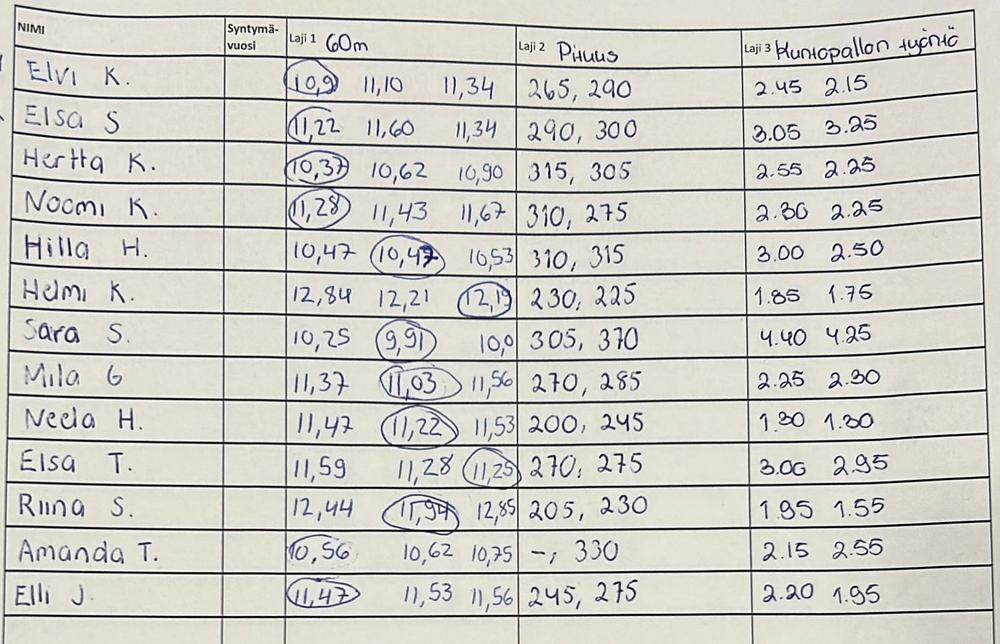 NIMI Syntymä-vuosi Laji 1 60m Laji 2 Pituus Laji 3 Kuntopallon työntö
Elvi K. 10,9 11,10 11,34 265, 290 2.45 2.15
Elsa S 11,22 11,60 11,34 290, 300 3.05 3.25
Hertta K. 10,37 10,62 10,90 315, 305 2.55 2.25
Noomi K. 11,28 11,43 11,67 310, 275 2.30 2.25
Hilla H. 10,47 10,47 10,53 310, 315 3.00 2.50
Helmi K. 12,84 12,21 12,19 230, 225 1.85 1.75
Sara S. 10,25 9,91 10,0 305, 370 4.40 4.25
Mila G 11,37 11,03 11,56 270, 285 2.25 2.30
Neela H. 11,47 11,22 11,53 200, 245 1.30 1.30
Elsa T. 11,59 11,28 11,25 270, 275 3.00 2.95
Riina S. 12,44 11,94 12,85 205, 230 1.95 1.55
Amanda T. 10,56 10,62 10,75 -, 330 2.15 2.55
Elli J. 11,47 11,53 11,56 245, 275 2.20 1.95